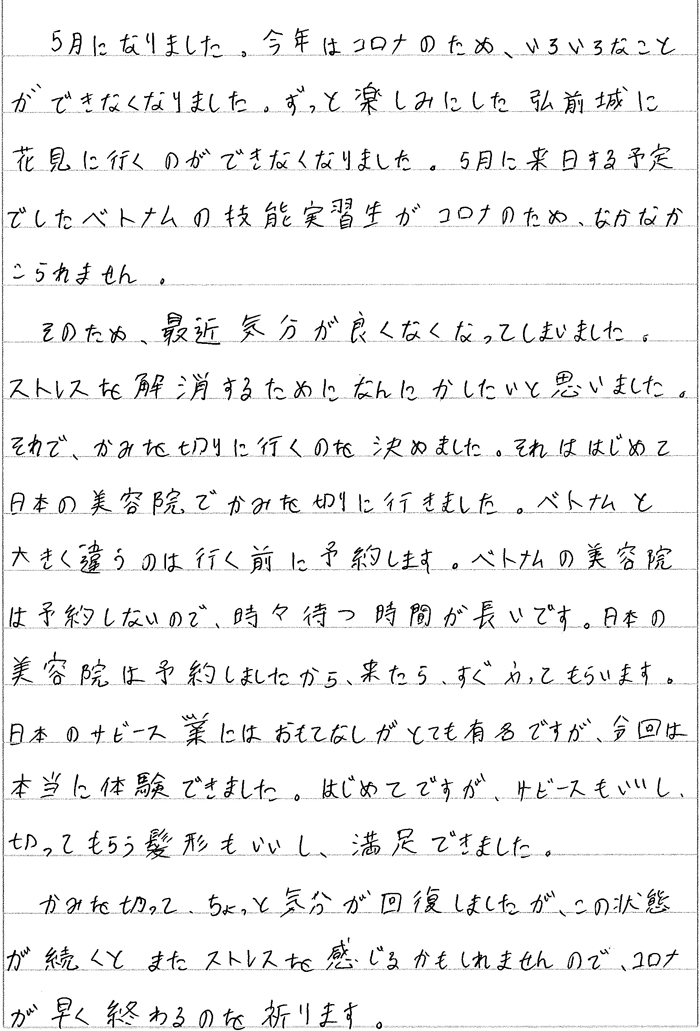 5月になりました。今年はコロナのため、いろいろなこと
ができなくなりました。ずっと楽しみにした弘前城に
花見に行くのができなくなりました。5月に来日する予定
でしたベトナムの技能実習生がコロナのため、なかなか
こられません。
そのため、最近気分が良くなくなってしまいました。
ストレスを解消するためになんにかしたいと思いました。
それで、かみを切りに行くのを決めました。それははじめて
日本の美容院でかみを切りに行きました。ベトナムと
大きく違うのは行く前に予約します。ベトナムの美容院
は予約しないので、時々待つ時間が長いです。日本の
美容院は予約しましたから、来たら、すぐやってもらいます。
日本のサビース業にはおもてなしがとても有名ですが、今回は
本当に体験できました。はじめてですが、サビースもいいし、
切ってもらう髪形もいいし、満足できました。
かみを切って、ちょっと気分が回復しましたが、この状態
が続くとまたストレスを感じるかもしれませんので、コロナ
が早く終わるのを祈ります。